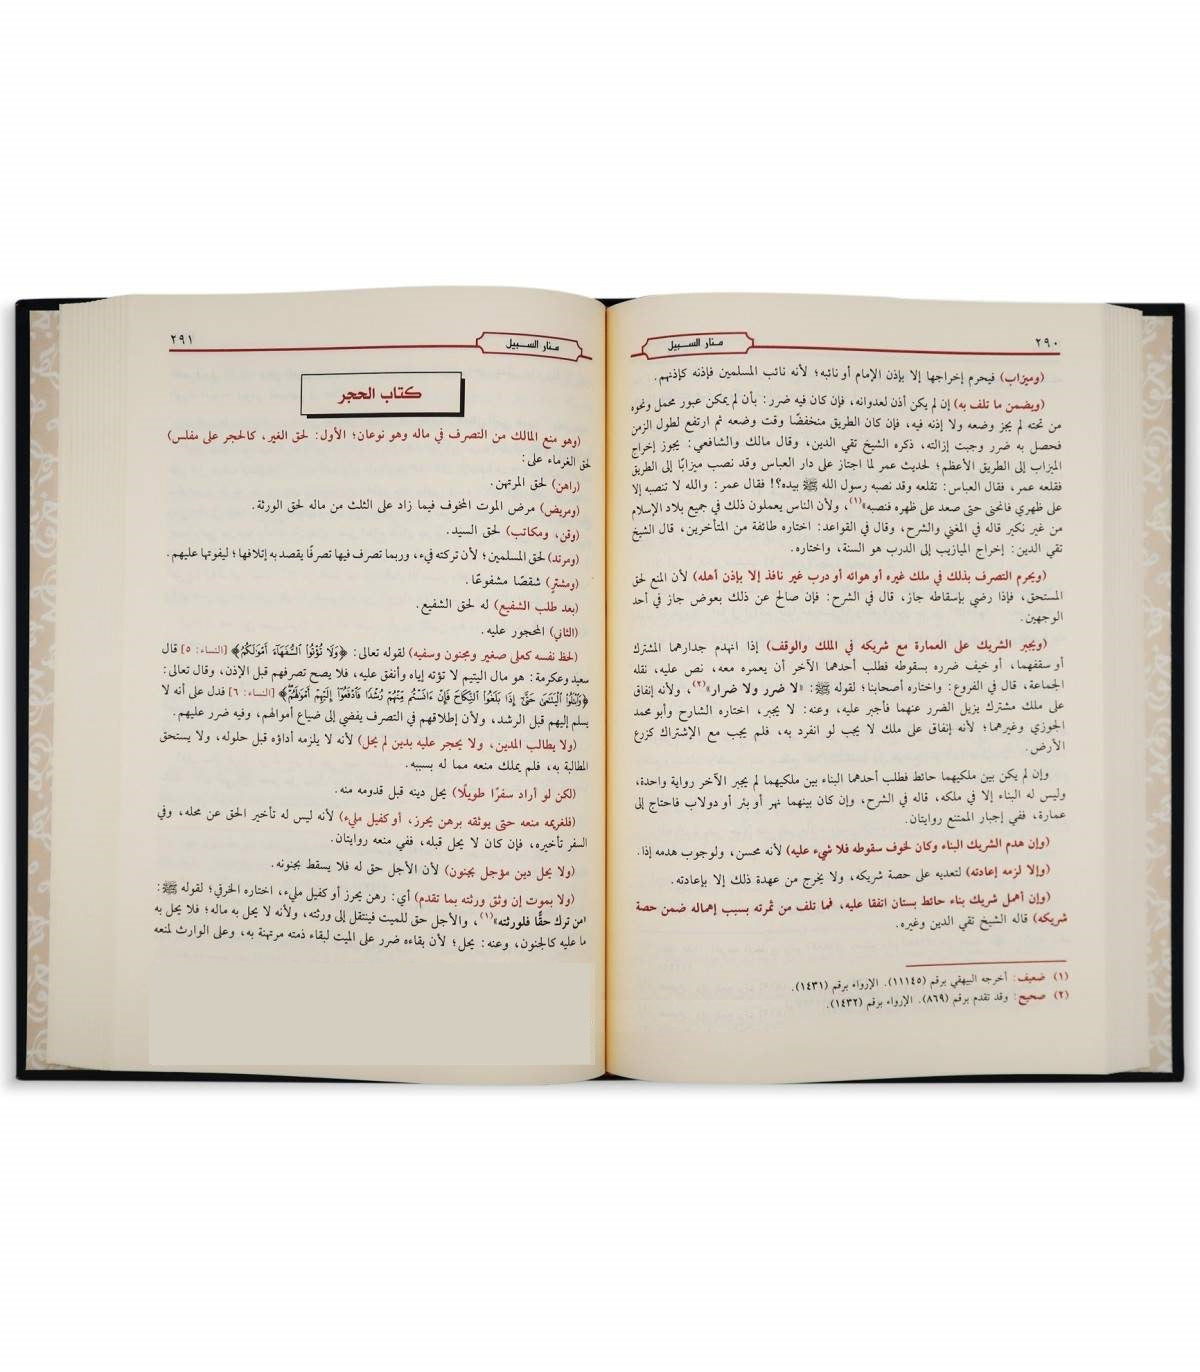 ٢٩٠
منار السبيل
(وميزاب) فيحرم إخراجها إلا بإذن الإمام أو نائبه؛ لأنه نائب المسلمين فإذنه كإذنهم.
(ويضمن ما تلف به) إن لم يكن أذن لعدوانه، فإن كان فيه ضرر: بأن لم يمكن عبور محمل ونحوه
من تحته لم يجز وضعه ولا إذنه فيه، فإن كان الطريق منخفضًا وقت وضعه ثم ارتفع لطول الزمن
فحصل به ضرر وجبت إزالته، ذكره الشيخ تقي الدين، وقال مالك والشافعي: يجوز إخراج
الميزاب إلى الطريق الأعظم؛ لحديث عمر لما اجتاز على دار العباس وقد نصب ميزابًا إلى الطريق
فقلعه عمر، فقال العباس: تقلعه وقد نصبه رسول الله ﷺ بيده؟! فقال عمر: والله لا تنصبه إلا
على ظهري فانحنى حتى صعد على ظهره فنصبه»(١)، ولأن الناس يعملون ذلك في جميع بلاد الإسلام
من غير نكير قاله في المغني والشرح، وقال في القواعد: اختاره طائفة من المتأخرين، قال الشيخ
تقي الدين: إخراج الميازيب إلى الدرب هو السنة، واختاره.
(ويحرم التصرف بذلك في ملك غيره أو هوائه أو درب غير نافذ إلا بإذن أهله) لأن المنع لحق
المستحق، فإذا رضي بإسقاطه جاز، قال في الشرح: فإن صالح عن ذلك بعوض جاز في أحد
الوجهين.
(ويجبر الشريك على العمارة مع شريكه في الملك والوقف) إذا انهدم جدارهما المشترك
أو سقفهما، أو خيف ضرره بسقوطه فطلب أحدهما الآخر أن يعمره معه، نص عليه، نقله
الجماعة، قال في الفروع: واختاره أصحابنا؛ لقوله ﷺ: «لا ضرر ولا ضرار»(٢)، ولأنه إنفاق
على ملك مشترك يزيل الضرر عنهما فأجبر عليه، وعنه: لا يجبر، اختاره الشارح وأبو محمد
الجوزي وغيرهما؛ لأنه إنفاق على ملك لا يجب لو انفرد به، فلم يجب مع الإشتراك كزرع
الأرض.
وإن لم يكن بين ملكيهما حائط فطلب أحدهما البناء بين ملكيهما لم يجبر الآخر رواية واحدة،
وليس له البناء إلا في ملكه، قاله في الشرح، وإن كان بينهما نهر أو بئر أو دولاب فاحتاج إلى
عمارة، ففي إجبار الممتنع روايتان.
(وإن هدم الشريك البناء وكان لخوف سقوطه فلا شيء عليه) لأنه محسن، ولوجوب هدمه إذا.
(وإلا لزمه إعادته) لتعديه على حصة شريكه، ولا يخرج من عهدة ذلك إلا بإعادته.
(وإن أهمل شريك بناء حائط بستان اتفقا عليه، فما تلف من ثمرته بسبب إهماله ضمن حصة
شريكه) قاله الشيخ تقي الدين وغيره.
(١) ضعيف: أخرجه البيهقي برقم (١١١٤٥). الإرواء برقم (١٤٣١).
(٢) صحيح: وقد تقدم برقم (٨٦٩). الإرواء برقم (١٤٣٢).
منار السبيل
٢٩١
كتاب الحجر
(وهو منع المالك من التصرف في ماله وهو نوعان؛ الأول: لحق الغير، كالحجر على مفلس)
لحق الغرماء على:
(راهن) لحق المرتهن.
(ومريض) مرض الموت المخوف فيما زاد على الثلث من ماله لحق الورثة.
(وقن، ومكاتب) لحق السيد.
(ومرتد) لحق المسلمين؛ لأن تركته فيء، وربما تصرف فيها تصرفًا يقصد به إتلافها؛ ليفوتها عليهم.
(ومشترٍ) شقصًا مشفوعًا.
(بعد طلب الشفيع) له لحق الشفيع.
(الثاني) المحجور عليه.
(لحظ نفسه كعلى صغير ومجنون وسفيه) لقوله تعالى: ﴿وَلَا تُؤْتُوا۟ ٱلسُّفَهَآءَ أَمْوَٰلَكُمُ﴾ [النساء: ٥] قال
سعيد وعكرمة: هو مال اليتيم لا تؤته إياه وأنفق عليه، فلا يصح تصرفهم قبل الإذن، وقال تعالى:
﴿وَٱبْتَلُوا۟ ٱلْيَتَٰمَىٰ حَتَّىٰٓ إِذَا بَلَغُوا۟ ٱلنِّكَاحَ فَإِنْ ءَانَسْتُم مِّنْهُمْ رُشْدًا فَٱدْفَعُوٓا۟ إِلَيْهِمْ أَمْوَٰلَهُمْ﴾ [النساء: ٦] فدل على أنه لا
يسلم إليهم قبل الرشد، ولأن إطلاقهم في التصرف يفضي إلى ضياع أموالهم، وفيه ضرر عليهم.
(ولا يطالب المدين، ولا يحجر عليه بدين لم يحل) لأنه لا يلزمه أداؤه قبل حلوله، ولا يستحق
المطالبة به، فلم يملك منعه مما له بسببه.
(لكن لو أراد سفرًا طويلًا) يحل دينه قبل قدومه منه.
(فلغريمه منعه حتى يوثقه برهن يحرز، أو كفيل مليء) لأنه ليس له تأخير الحق عن محله، وفي
السفر تأخيره، فإن كان لا يحل قبله، ففي منعه روايتان.
(ولا يحل دين مؤجل بجنون) لأن الأجل حق له فلا يسقط بجنونه.
(ولا بموت إن وثق ورثته بما تقدم) أي: رهن يحرز أو كفيل مليء، اختاره الخرقي؛ لقوله ﷺ:
«من ترك حقًّا فلورثته»(١)، والأجل حق للميت فينتقل إلى ورثته، ولأنه لا يحل به ماله؛ فلا يحل به
ما عليه كالجنون، وعنه: يحل؛ لأن بقاءه ضرر على الميت لبقاء ذمته مرتهنة به، وعلى الوارث لمنعه